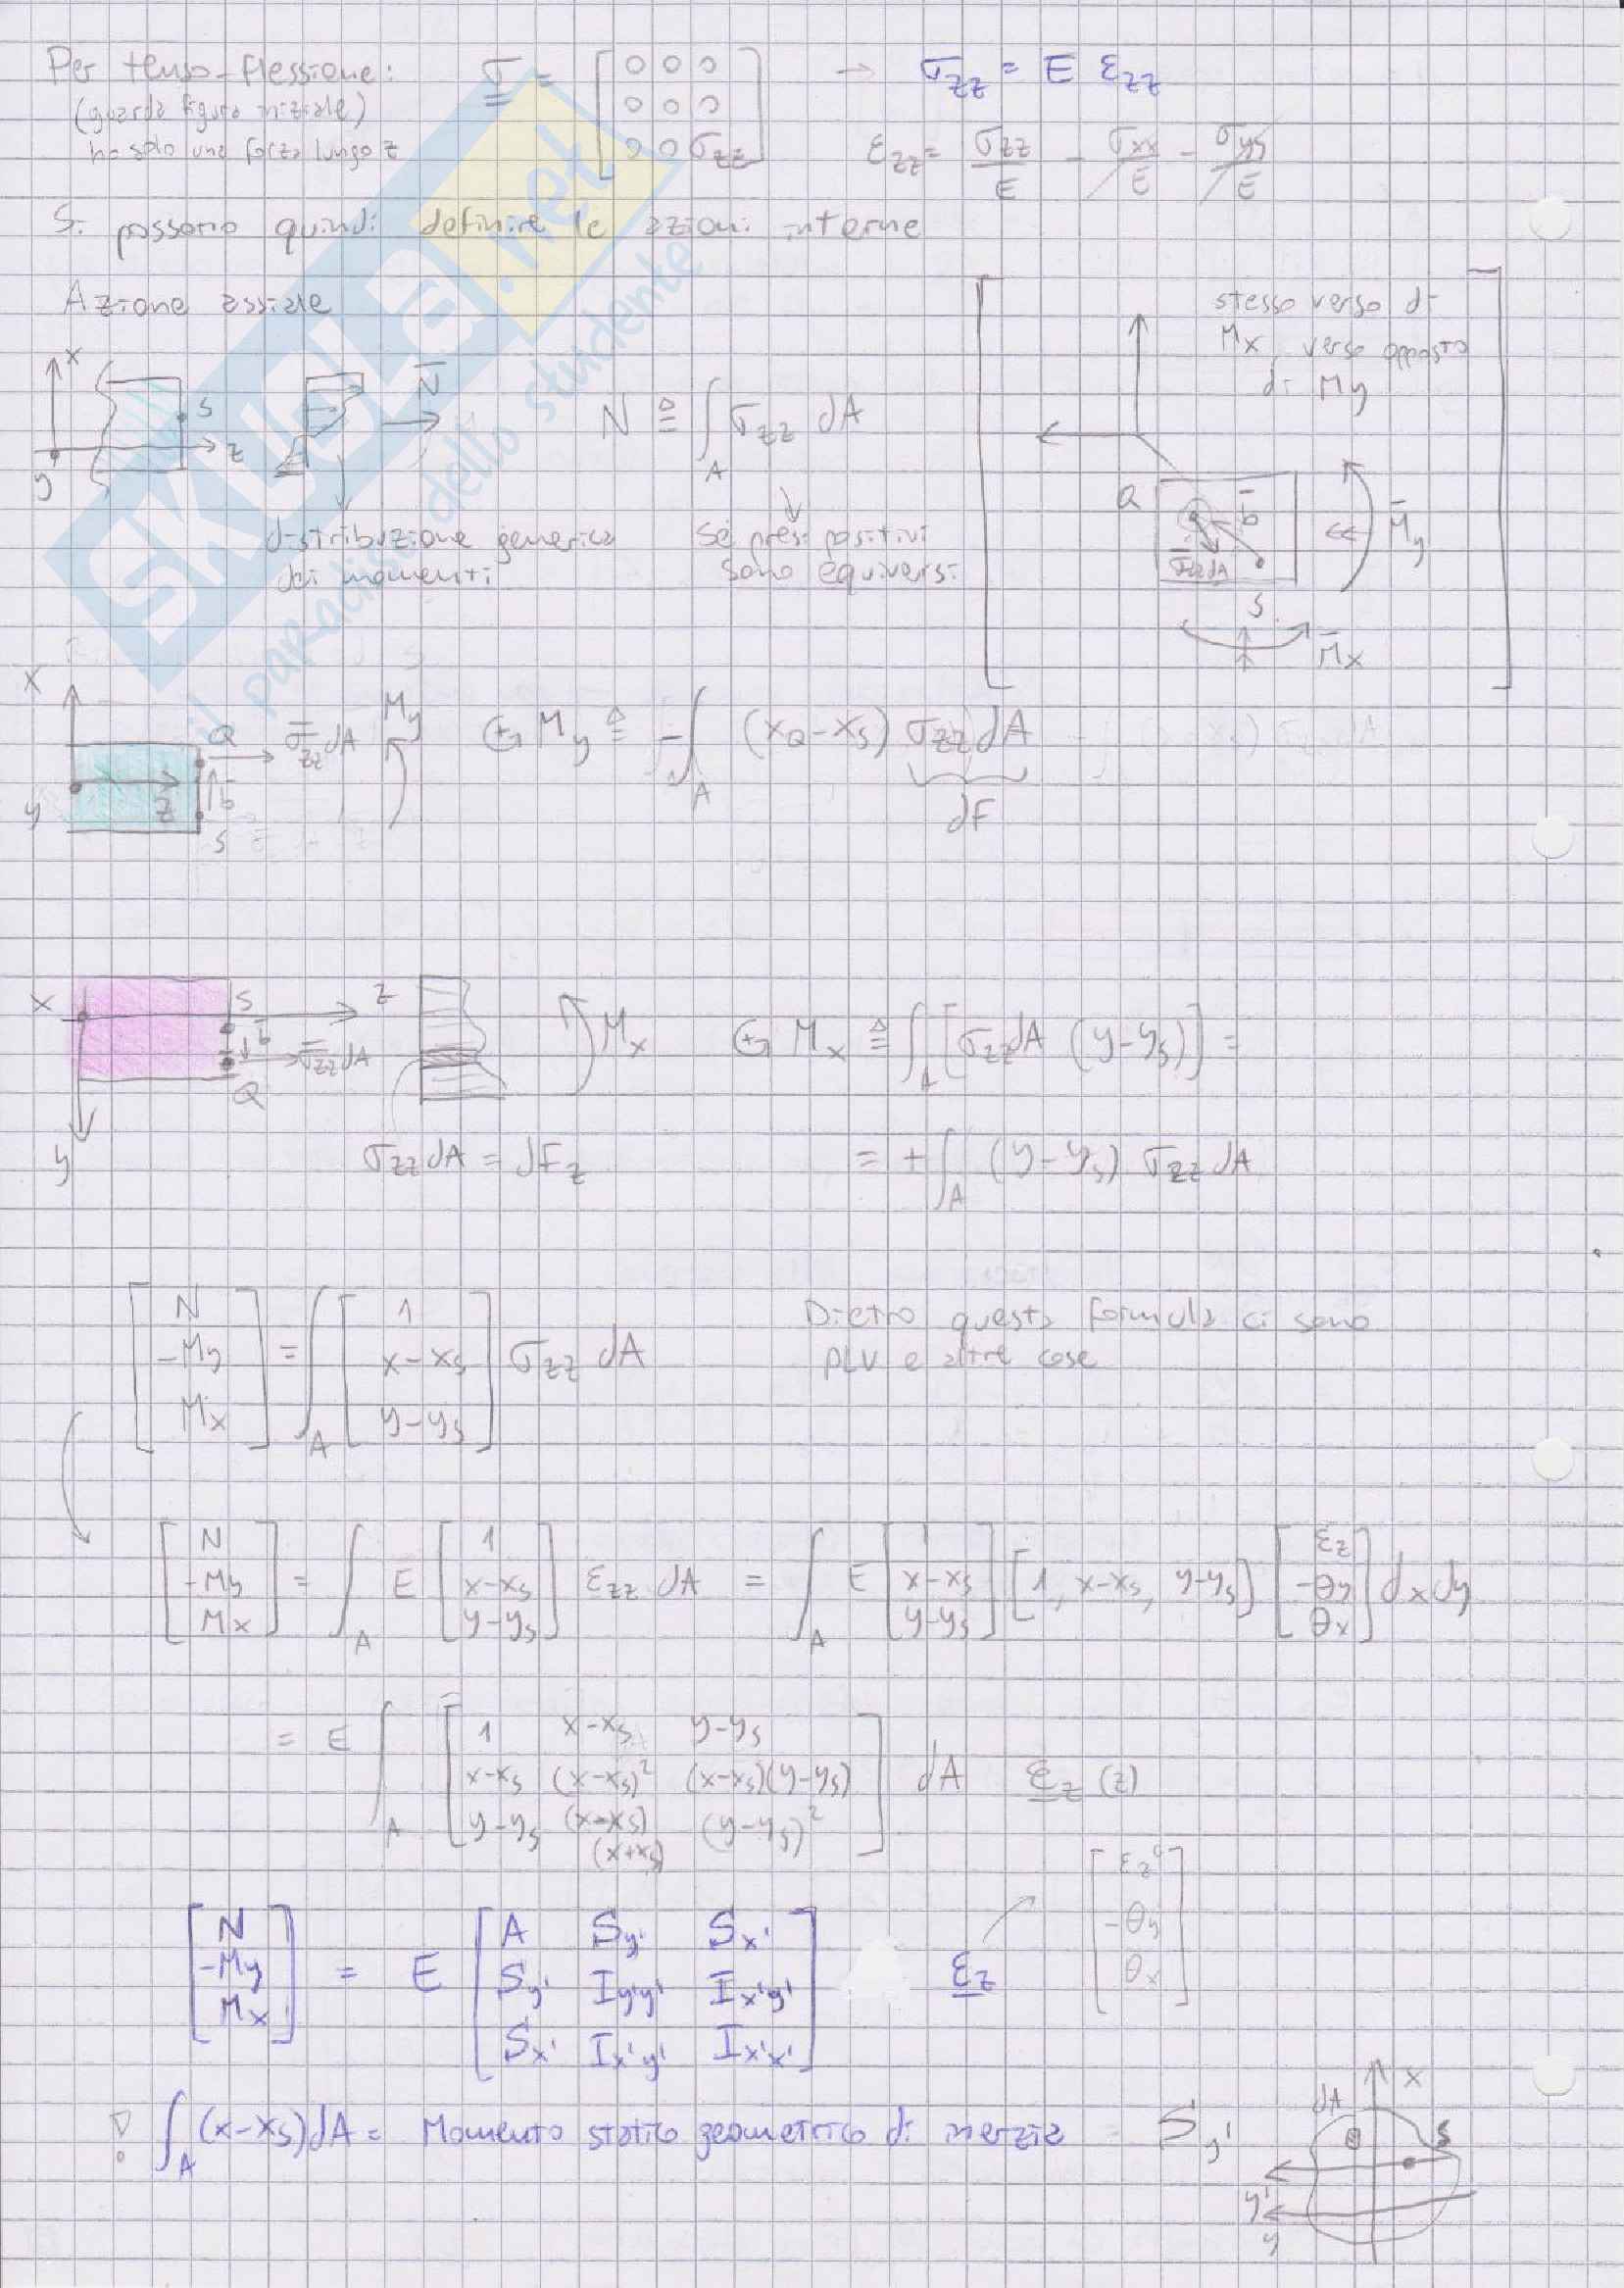 Per tenso-flessione: σ = [0 0 0; 0 0 0; 0 0 σzz] → σzz = E εzz
(guarda figura iniziale)
ho solo una forza lungo z
εzz = σzz/E - σxx/E - σyy/E
Si possono quindi definire le azioni interne
Azione assiale
x
S
z
y
N̄
N ≜ ∫A σzz dA
distribuzione generica dei momenti
Se presi positivi sono equiversi
stesso verso di
Mx, verso opposto
di My
Q
b̄
σ̄zz dA
S
M̄y
M̄x
x
Q
σ̄zz dA
My
b̄
z
y
S
My ≜ -∫A (xQ-xS) σzz dA
dF
x
S
z
b̄
σ̄zz dA
Q
y
Mx
Mx ≜ ∫A [σzz dA (y-yS)] =
σzz dA = dFz
= +∫A (y-yS) σzz dA
[N; -My; Mx] = ∫A [1; x-xS; y-yS] σzz dA
Dietro questa formula ci sono
PLV e altre cose
[N; -My; Mx] = ∫A E [1; x-xS; y-yS] εzz dA = ∫A E [1; x-xS; y-yS] [1, x-xS, y-yS] [εz; -θy; θx] dxdy
= E ∫A [1 x-xS y-yS; x-xS (x-xS)² (x-xS)(y-yS); y-yS (x-xS)(x+xS) (y-yS)²] dA εz (z)
[εz°; -θy; θx]
[N; -My; Mx] = E [A Sy' Sx'; Sy' Iy'y' Ix'y'; Sx' Ix'y' Ix'x'] εz
∫A (x-xS)dA = Momento statico geometrico di inerzia = Sy'
dA
x
S
y'
y
SKUOLA.net
il paradiso dello studente